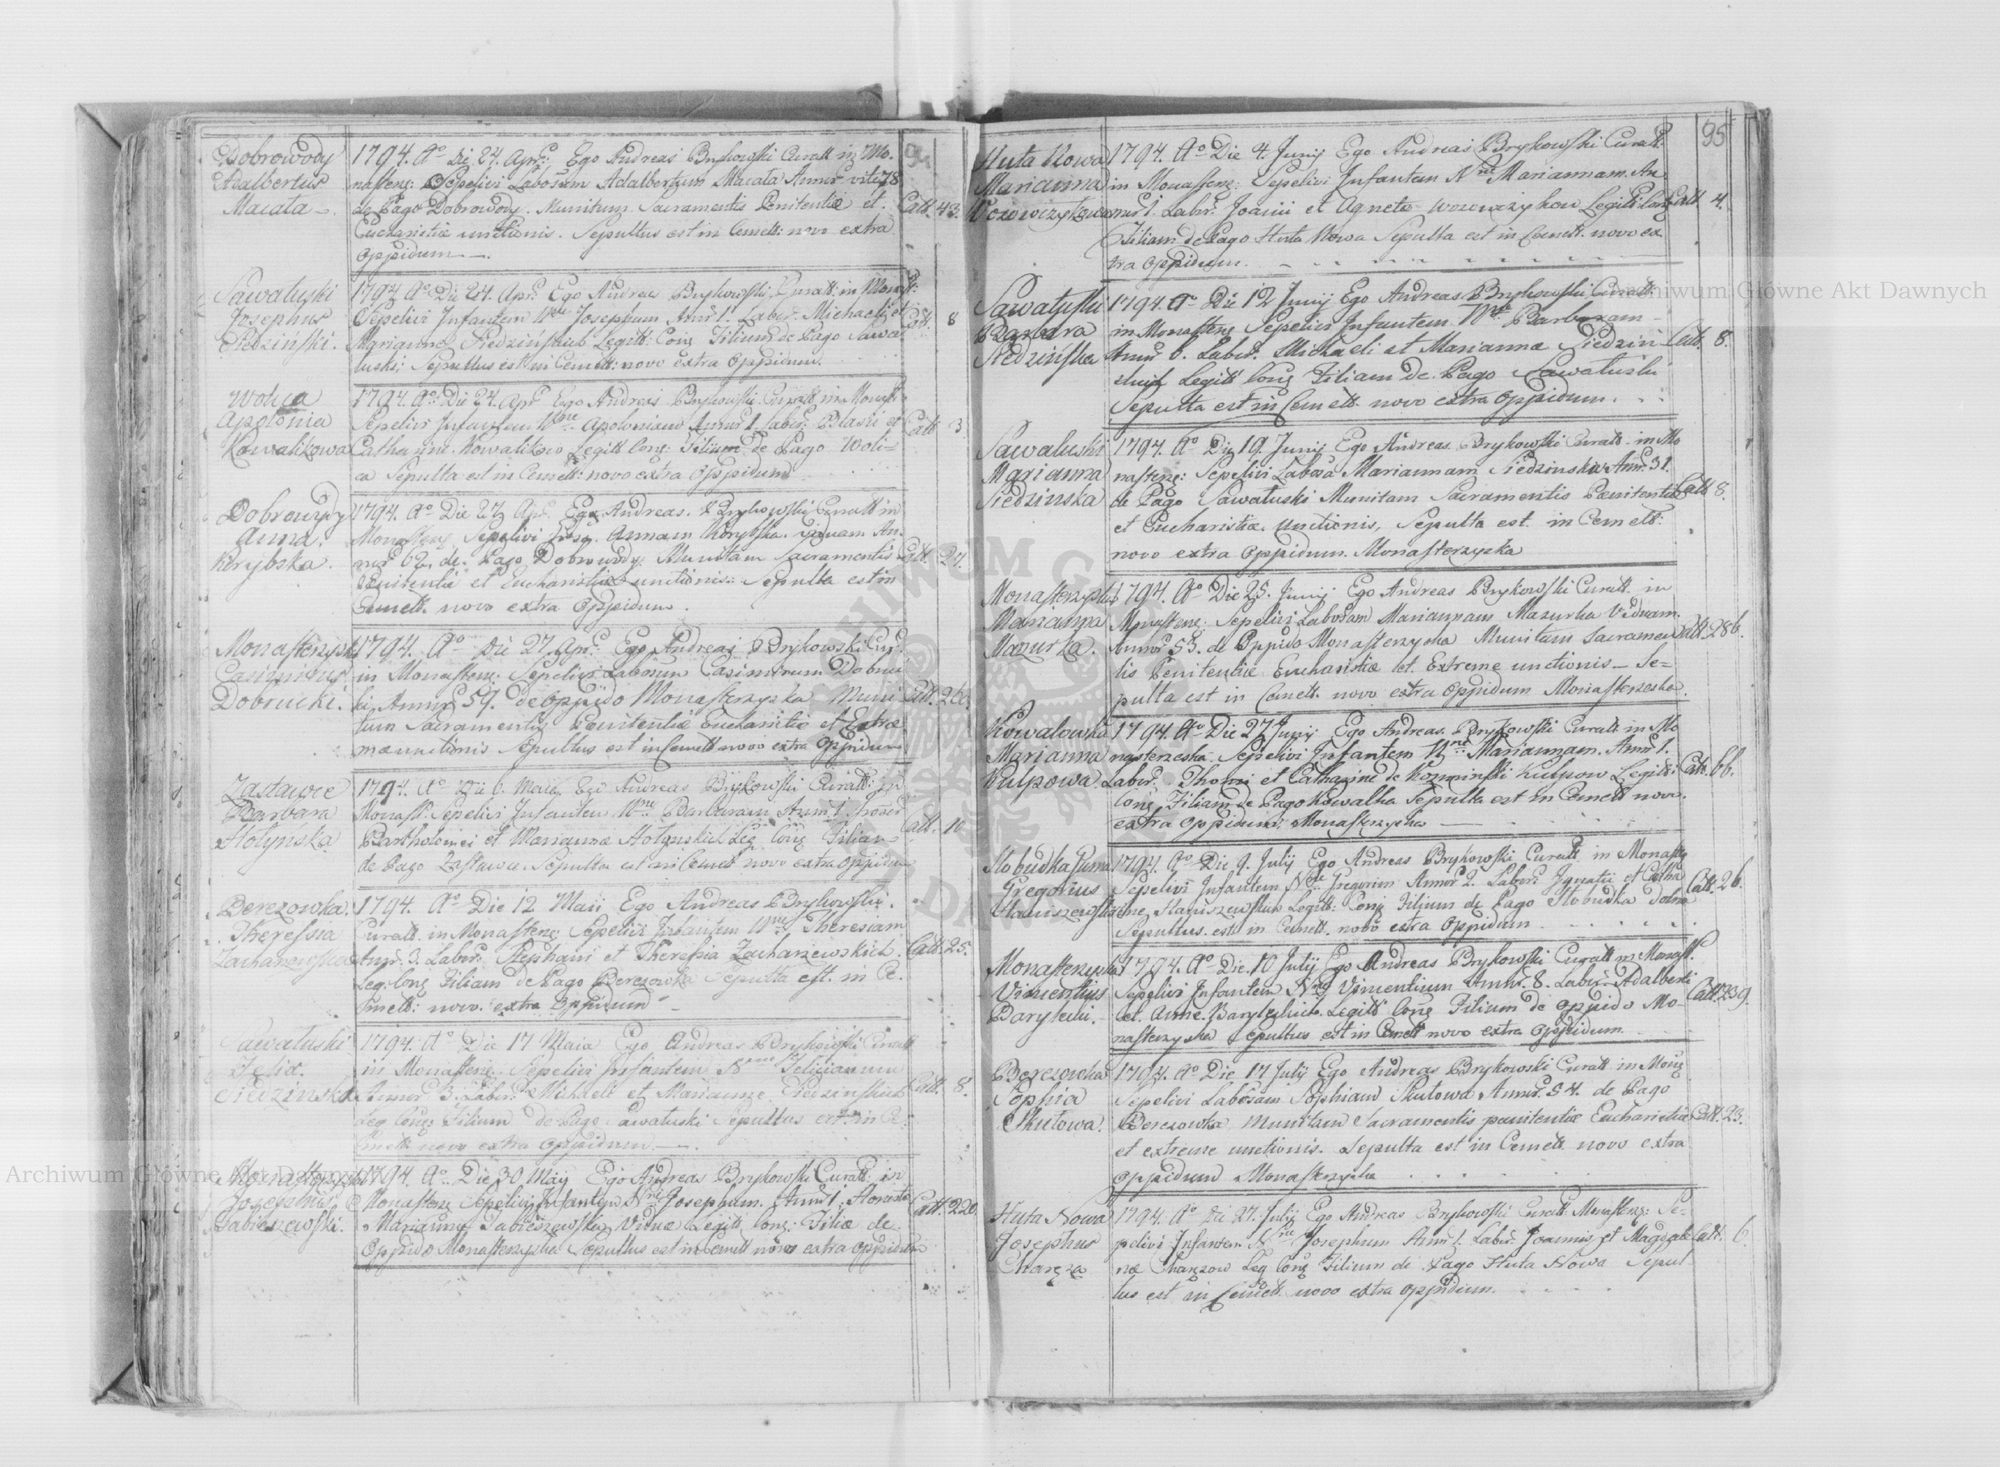 Dobrowody
Adalbertus
Macata
1794. Aº Die 24. Apr: Ego Andreas Brykowski Curatt in Mo-
nasterz: Sepelivi Labosum Adalbertum Macata Annor vite 78
de Pago Dobrowody. Munitum Sacramentis Penitentiæ et
Eucharistiæ unctionis. Sepultus est in Cemett: novo extra
oppidum
Catt. 43.
Sawaluski
Josephus
Siedzinski.
1794 Aº Die 24. Apr. Ego Andreas Brykowski Curatt: in Monast:
Sepelivi Infantem Nne Josephum Ann 1. Labor: Michaeli et
Marianna Siedzinskich Legitt: Conj Filium de Pago Sawa-
luski; Sepultus est in Cemett: novo extra oppidum.
8
Wolica
Apolonia
Kowalikowa
1794. Aº Die 24. Apr Ego Andreas Brykowski Curatt in Monast:
Sepelivi Infantem Nne Apoloniam Annor 1. Labor: Blasii et
Catharine Kowalikow Legitt Conj: Filiam de Pago Woli-
ca Sepulta est in Cemett: novo extra oppidum
Catt 3.
Dobrowody
Anna
Korybska.
1794. Aº Die 27 Apr. Ego Andreas Brykowski Curatt in
Monasterz Sepelivi Annam Korybska viduam An-
nor 62 de Pago Dobrowody. Munitam Sacramentis
Penitentiæ et Eucharistiæ unctionis: Sepulta est in
Cemett. novo extra oppidum.
Catt. 24.
Monasterzyska
Casimirus
Dobrucki.
1794. Aº Die 27. Apr. Ego Andreas Brykowski Cur:
in Monasterz: Sepelivi Labosum Casimirum Dobruc-
ki Annor 59. de oppido Monasterzyska Muni
tum Sacramentis Penitentiæ Eucharistiæ et Extre
mæ unctionis Sepultus est in Cemett novo extra oppidum
Zastawce
Barbara
Holynska
1794. Aº Die 6. Maii Ego Andreas Brykowski Curatt: in
Monast: Sepelivi Infantem Nne Barbaram Annor 1.
Bartholomei et Marianna Holynskich Leg Conj Filiam
de Pago Zastawce. Sepulta est in Cemett novo extra oppidum
Catt. 10
Berezowka.
Theressia
Zacharzewska
1794. Aº Die 12 Maii Ego Andreas Brykowski.
Curatt. in Monasterz Sepelivi Infantem Nne Theresiam
Ann. 3. Labor. Stephani et Theresia Zacharzewskich
Leg: Conj Filiam de Pago Berezowka Sepulta est. in Ce-
mett: novo. extra oppidum
Catt. 25.
Sawaluski
Felix
Siedzinski
1794. Aº Die 17 Maia Ego Andreas Brykowski Curatt
in Monasterz: Sepelivi Infantem Nne Felicianum
Annor 3. Labor: Michaeli et Marianne Siedzinskich
Leg Conj Filium de Pago Sawaluski Sepultus est in Ce-
mett novo extra oppidum
Catt. 8.
Monasterzyska
Josephus
Sabieszewski.
1794. Aº. Die 30 Maij Ego Andreas Brykowski Curatt: in
Monasterz Sepelivi Infantem Nne Josephum. Ann 1. Honesta
Marianne Sabieszewska Viduæ Legitt Conj: Filiæ de
Oppido Monasterzyska Sepultus est in Cemett novo extra oppidum
Catt. 220
95
Huta Nowa
Marianna
Woiewizykowa
1794. Aº Die 4. Junij Ego Andreas Brykowski Curatt.
in Monasterz: Sepelivi Infantem Nne Mariannam An-
nor 1. Labor. Joanii et Agneta Legitt Conj
Filiam de Pago Huta Nowa Sepulta est in Cemett. novo ex
tra oppidum.
Catt 4.
Sawaluski
Barbara
Siedzinska
1794. Aº Die 12 Junij Ego Andreas Brykowski Curatt:
in Monasterz Sepelivi Infantem Nne Barbaram
Annor 6. Labor. Michaeli et Marianna Siedzin-
skich Legitt Conj Filiam de Pago Sawaluski
Sepulta est in Cemett. novo extra oppidum.
Catt. 8.
Sawaluski
Marianna
Siedzinska
1794. Aº Die 19. Junij Ego Andreas Brykowski Curatt. in Mo
nasterz: Sepelivi Labosa Mariannam Siedzinska Ann. 31.
de Pago Sawaluski Munitam Sacramentis Pænitentiæ
et Eucharistiæ. unctionis, Sepulta est. in Cemett:
novo extra oppidum. Monasterzyska
Catt. 8.
Monasterzyska
Marianna
Mazurka.
1794. Aº Die 25. Junij Ego Andreas Brykowski Curatt. in
Monasterz: Sepelivi Labosam Mariannam Mazurka Viduam.
Annor 55. de Oppido Monasterzyska Munitam Sacramen-
tis Penitentiæ Eucharistiæ et. Extreme unctionis Se-
pulta est in Cemett. novo extra oppidum Monasterzeska.
Catt. 286.
Kowalowka
Marianna
Kulpowa
1794. Aº Die 27 Junij Ego Andreas Brykowski Curatt in Mo
nasterzeska Sepelivi Infantem Nne Mariannam. Ann 1.
Labor. Thomæ et Catharine de Kominski Kulpow Legitt:
Conj Filiam de Pago Kowalka Sepulta est in Cemett novo.
extra oppidum; Monasterzyska
Catt. 66.
Slobudka Gurna
Gregorius
Staniszewski
1794. Aº Die 9. Julij Ego Andreas Brykowski Curatt in Monasterz
Sepelivi Infantem Nne Gregorium Annor 2. Labor: Ignatii et Catha
rine Staniszewskich Legitt: Conj Filium de Pago Slobudka Dolna
Sepultus. est in Cemett. novo extra oppidum.
Catt. 26.
Monasterzyska
Vincentius
Barylski.
1794. Aº Die 10 Julij Ego Andreas Brykowski Curatt in Monast.
Sepelivi Infantem Nne Vincentium Annor. 8. Labor. Adalberti
et. Anne. Barylskich Legitt Conj Filium de oppido Mo-
nasterzyska Sepultus est in Cemett novo extra oppidum.
Catt. 239.
Berezowka
Sophia
Skutowa.
1794. Aº Die 17 Julij Ego Andreas Brykowski Curatt in Monz
Sepelivi Labosam Sophiam Skutowa Annor. 54. de Pago
Berezowka Munitam Sacramentis pænitentiæ Eucharistiæ
et extreme unctionis. Sepulta est in Cemett novo extra
oppidum Monasterzyska
Catt. 23.
Huta Nowa
Josephus
Charęza
1794. Aº Die 27. Julij Ego Andreas Brykowski Curatt Monasterz: Se-
pelivi Infantem Nne Josephum Ann 1. Labor. Joannis et Magdale
næ Charęzow Leg Conj Filium de Pago Huta Nowa Sepul-
tus est in Cemett novo extra oppidum.
Catt. 6.
Archiwum Główne Akt Dawnych
Archiwum Główne Akt Dawnych